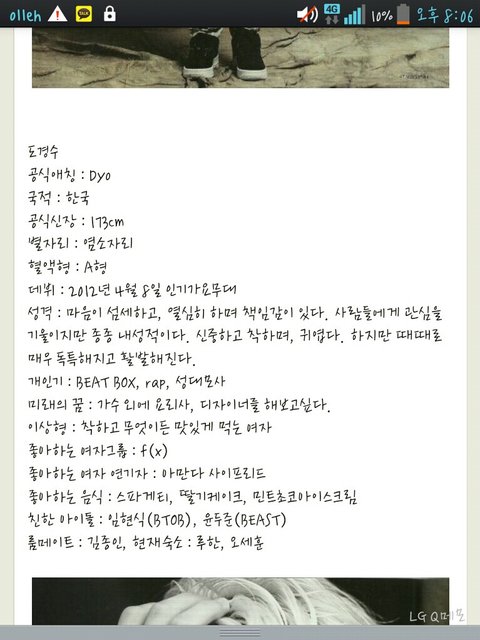 olleh 4G 10% 오후 8:06
도경수
공식애칭 : Dyo
국적 : 한국
공식신장 : 173cm
별자리 : 염소자리
혈액형 : A형
데뷔 : 2012년 4월 8일 인기가요무대
성격 : 마음이 섬세하고, 열심히 하며 책임감이 있다. 사람들에게 관심을
기울이지만 종종 내성적이다. 신중하고 착하며, 귀엽다. 하지만 때때로
매우 독특해지고 활발해진다.
개인기 : BEAT BOX, rap, 성대모사
미래의 꿈 : 가수 외에 요리사, 디자이너를 해보고싶다.
이상형 : 착하고 무엇이든 맛있게 먹는 여자
좋아하는 여자그룹 : f(x)
좋아하는 여자 연기자 : 아만다 사이프리드
좋아하는 음식 : 스파게티, 딸기케이크, 민트초코아이스크림
친한 아이돌 : 임현식(BTOB), 윤두준(BEAST)
룸메이트 : 김종인, 현재숙소 : 루한, 오세훈
LG Q메모